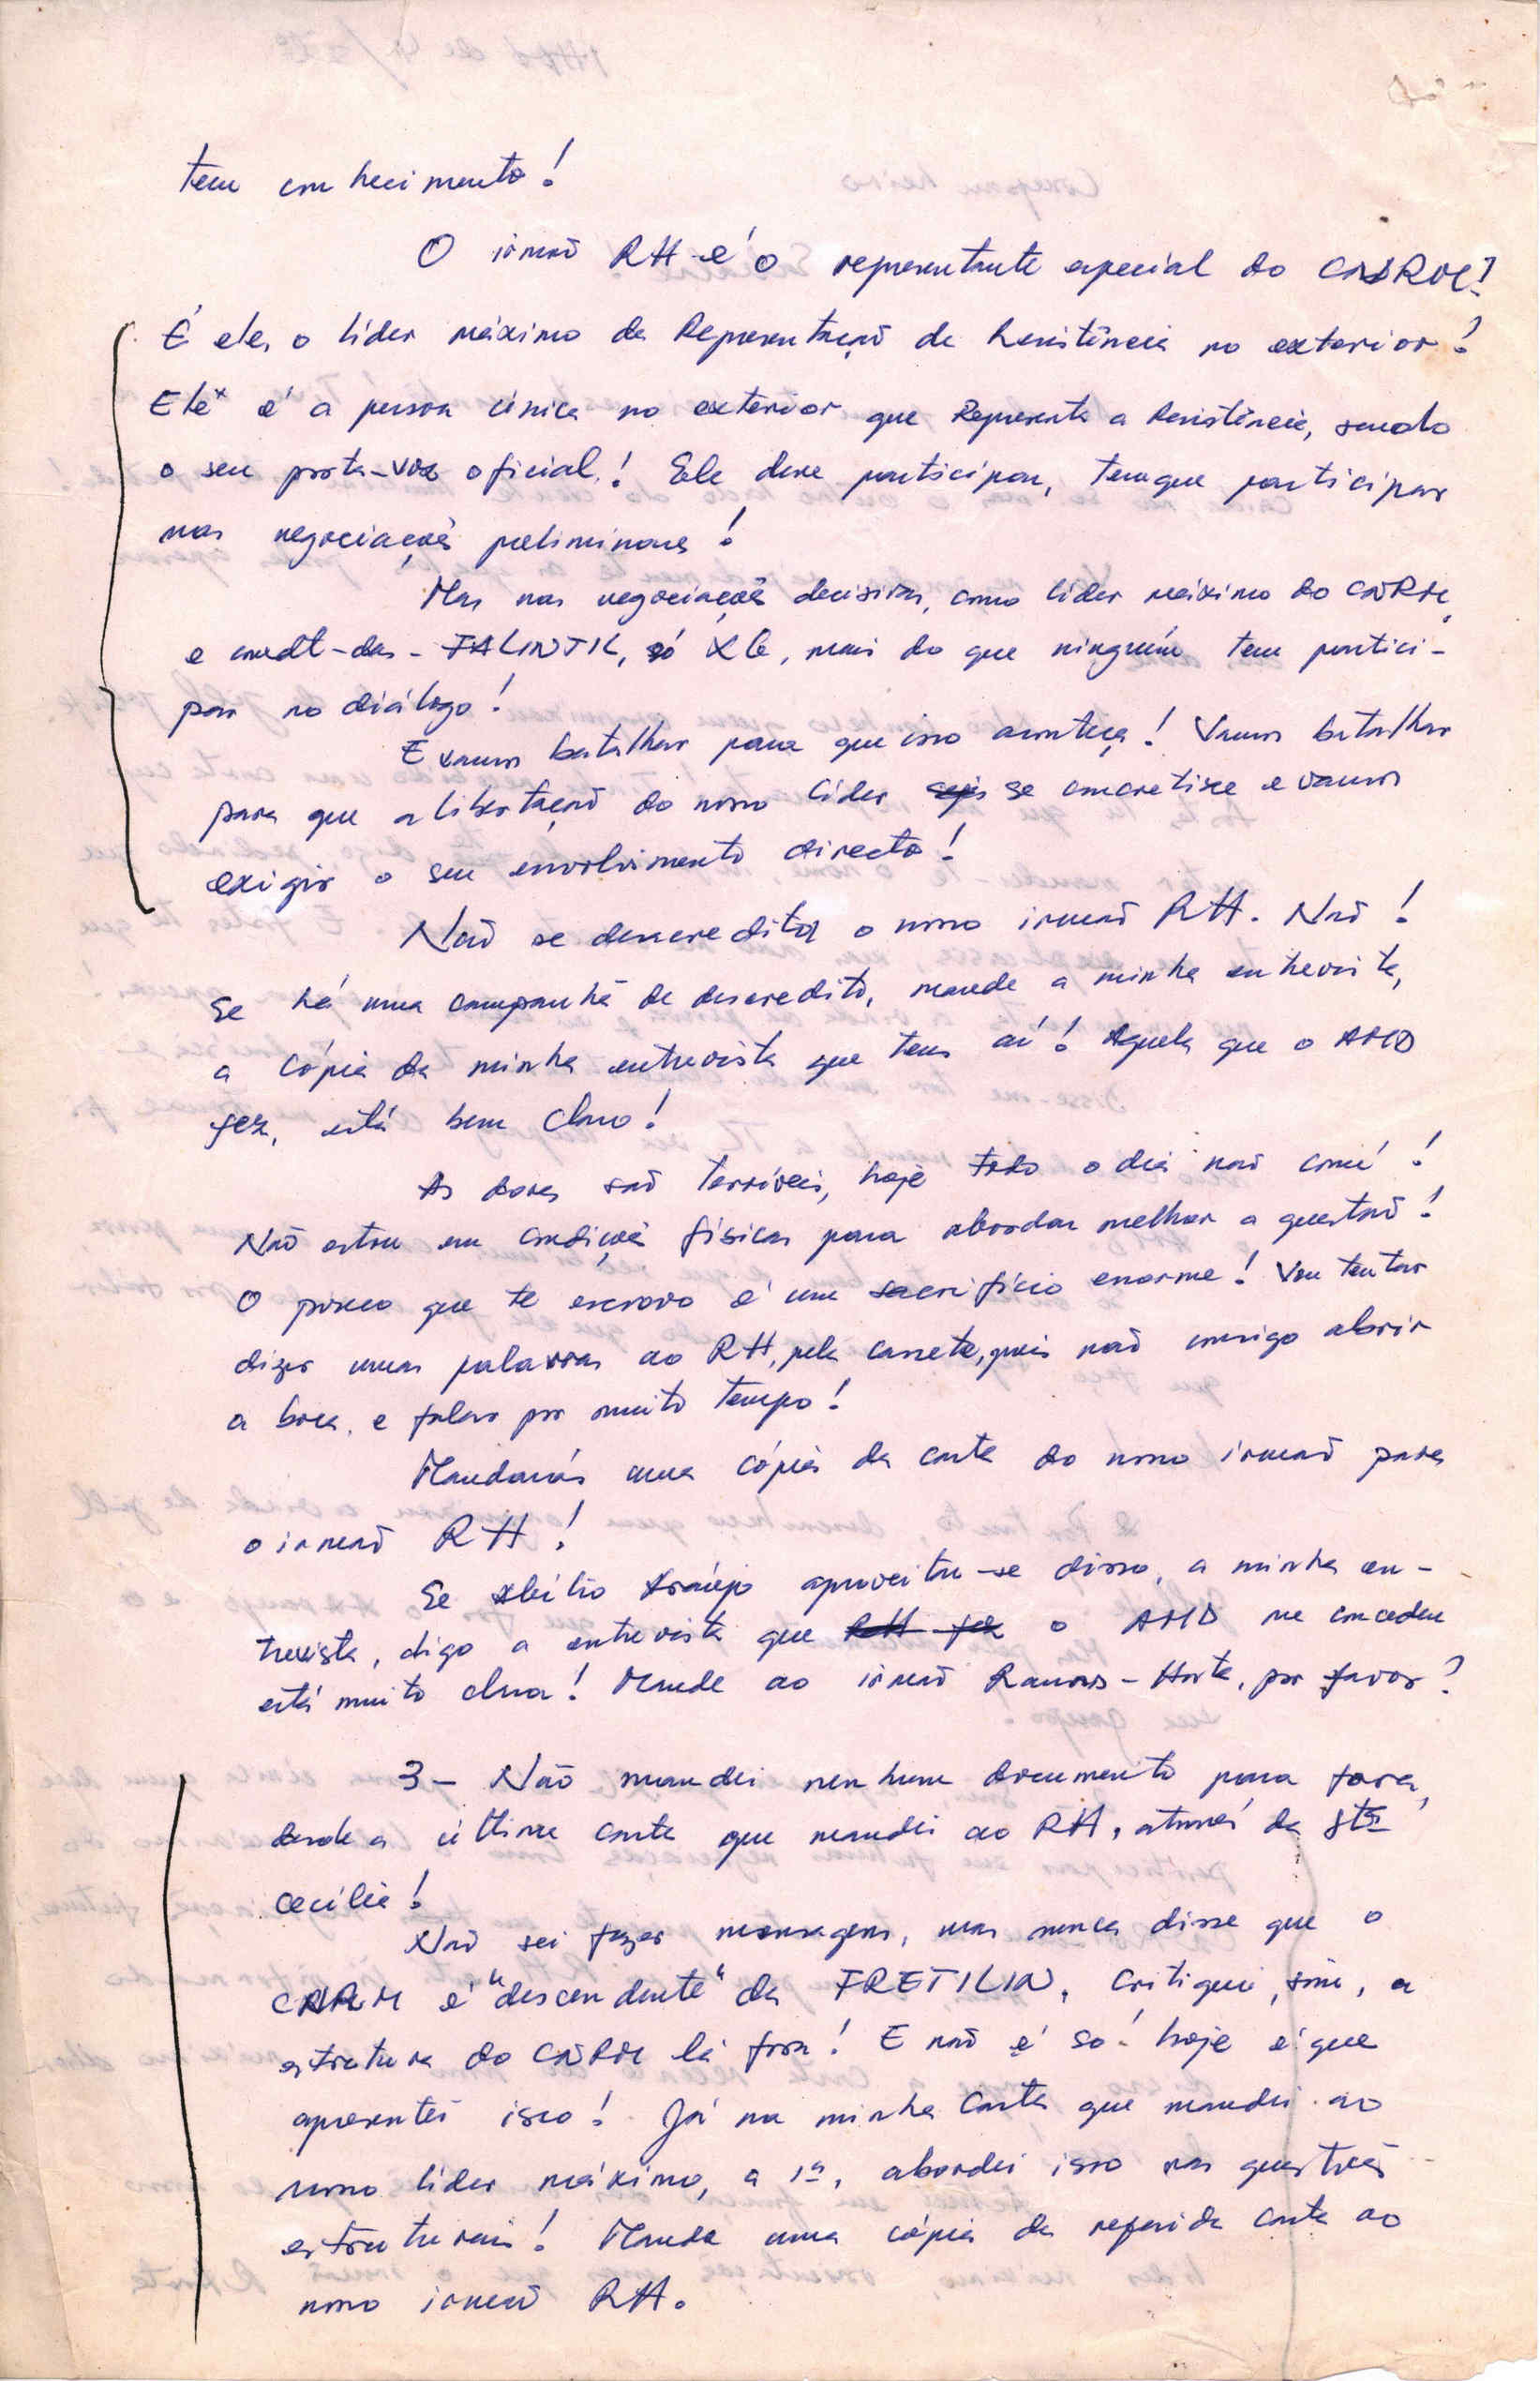 tem conhecimento!
O irmão RH é o representante especial do CNRM!
É ele, o líder máximo da Representação da Resistência no exterior!
Ele é a pessoa única no exterior que Representa a Resistência, sendo
o seu porta-voz oficial! Ele deve participar, tem que participar
nas negociações preliminares!
Mas nas negociações decisivas, como líder máximo do CNRM
e cmdt-das-FALINTIL, só XG, mais do que ninguém tem partici-
par no diálogo!
E vamos batalhar para que isso aconteça! Vamos batalhar
para que a libertação do nosso líder se concretize e vamos
exigir o seu envolvimento directo!
Não se desacredita o nosso irmão RH. Não!
Se há uma campanha de descredito, mande a minha entrevista,
a cópia da minha entrevista que tens aí! Aquela que o AMD
fez, está bem claro!
As dores são terríveis, hoje todo o dia não comi!
Não estou em condições físicas para abordar melhor a questão!
O pouco que te escrevo é um sacrifício enorme! Vou tentar
dizer umas palavras ao RH, pela cassete, pois não consigo abrir
a boca e falar por muito tempo!
Mandarás uma cópia da carta do nosso irmão para
o irmão RH!
Se Abílio Araújo aproveitou-se disso, a minha en-
trevista, digo a entrevista que RH fez o AMD me concedeu
está muito clara! Mande ao irmão Ramos-Horta, por favor?
3- Não mandei nenhum documento para fora,
desde a última carta que mandei ao RH, através da Stª
Cecília!
Não sei fazer mensagens, mas nunca disse que o
CNRM é "descendente" da FRETILIN. Critiquei, sim, a
estrutura do CNRM lá fora! E não é só hoje é que
apresentei isso! Já na minha carta que mandei ao
nosso líder máximo, a 1ª, abordei isso nas questões
estruturais! Mande uma cópia da referida carta ao
nosso irmão RH.